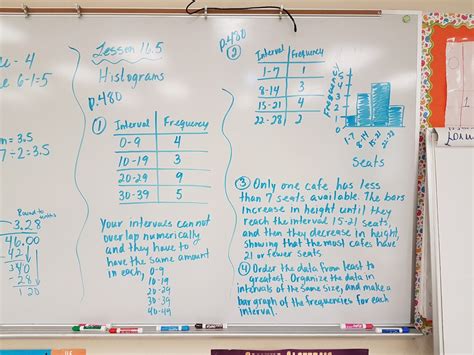 - 4
6-1-5
= 3.5
7÷2=3.5
Round to
tenths
3.28
46.00
42
340
28
120
Lesson 16.5
Histograms
p.480
①
Interval Frequency
0-9 4
10-19 3
20-29 9
30-39 5
Your intervals cannot
overlap numerically
and they have to
have the same amount
in each, 0-9
10-19
20-29
30-39
40-49
p.480
②
Interval Frequency
1-7 1
8-14 3
15-21 4
22-28 2
Frequency
5
4
3
2
1
1-7 8-14 15-21 22-28
Seats
③ Only one cafe has less
than 7 seats available. The bars
increase in height until they
reach the interval 15-21 seats,
and then they decrease in height,
showing that the most cafes have
21 or fewer seats.
④ Order the data from least to
greatest. Organize the data in
intervals of the same size, and make a
bar graph of the frequencies for each
interval.